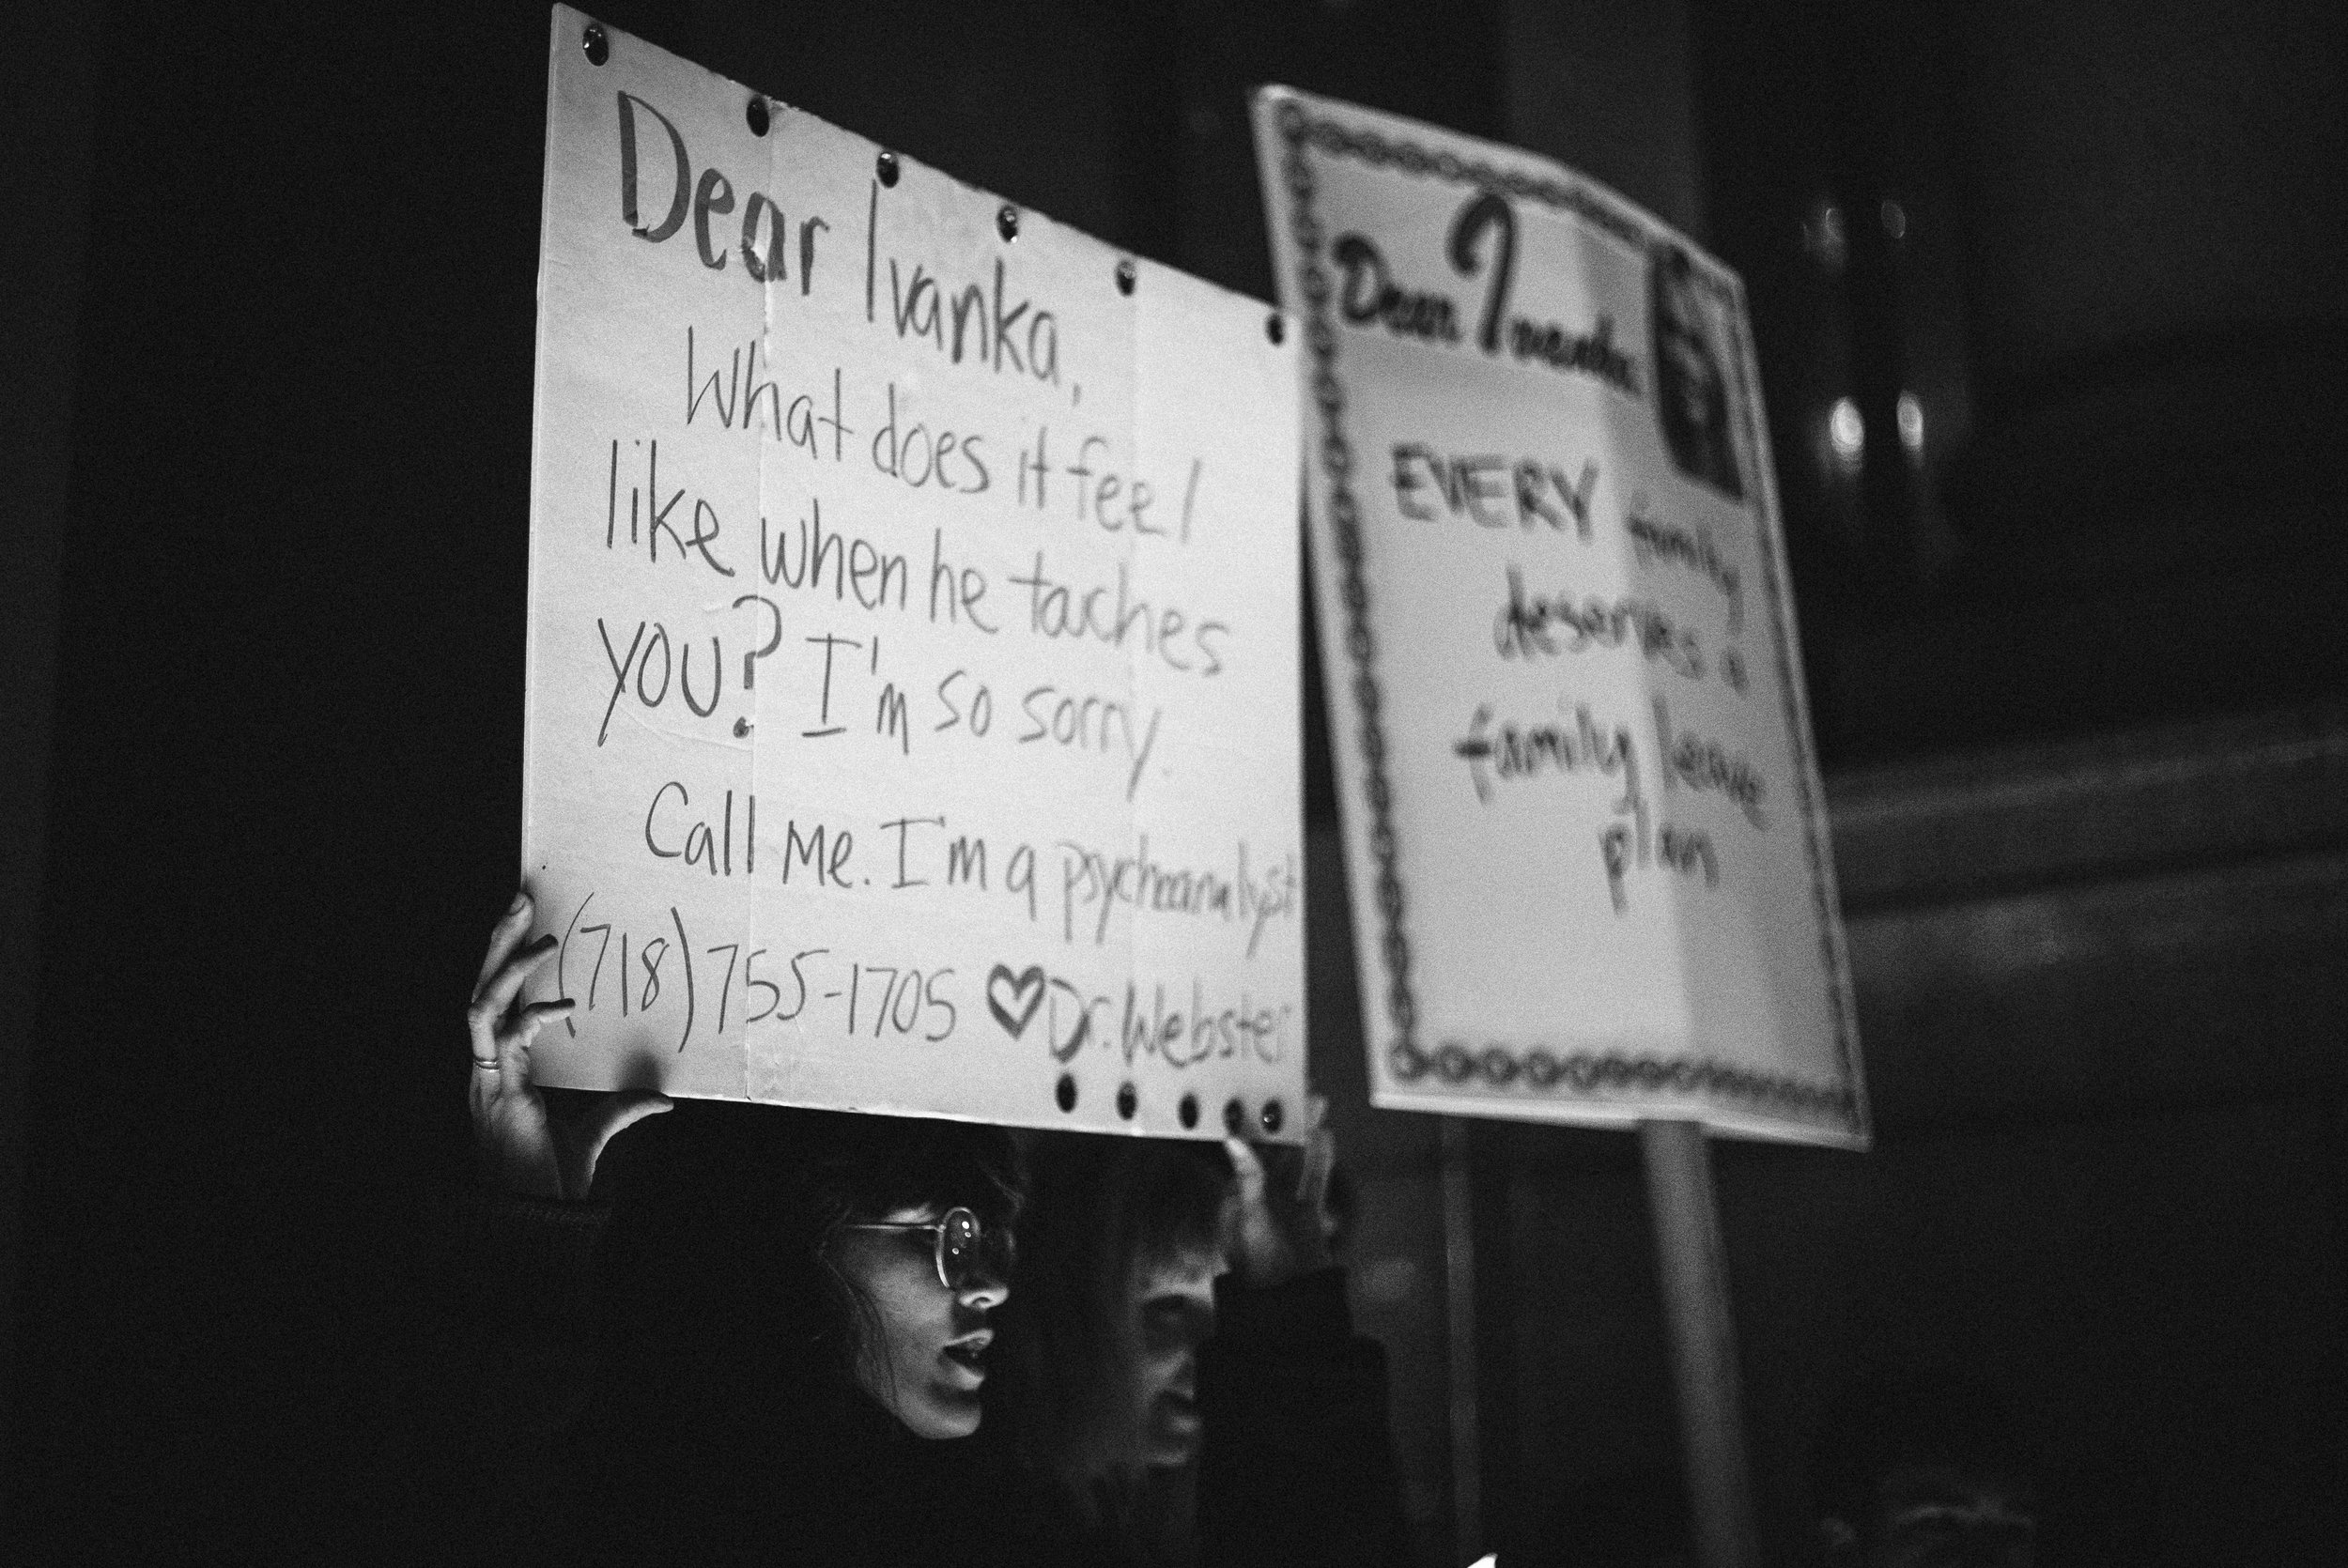 Dear Ivanka,
What does it feel
like when he touches
YOU? I'm so sorry.
Call me. I'm a psychoanalyst
(718) 755-1705 ♥ Dr. Webster
Dear Ivanka
EVERY family
deserves a
family leave
plan